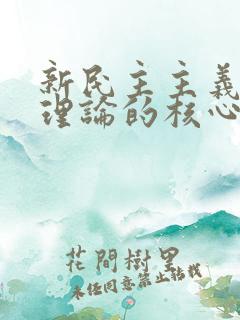 新民主主義
理論的核心
花間樹里
未經同意禁止轉載